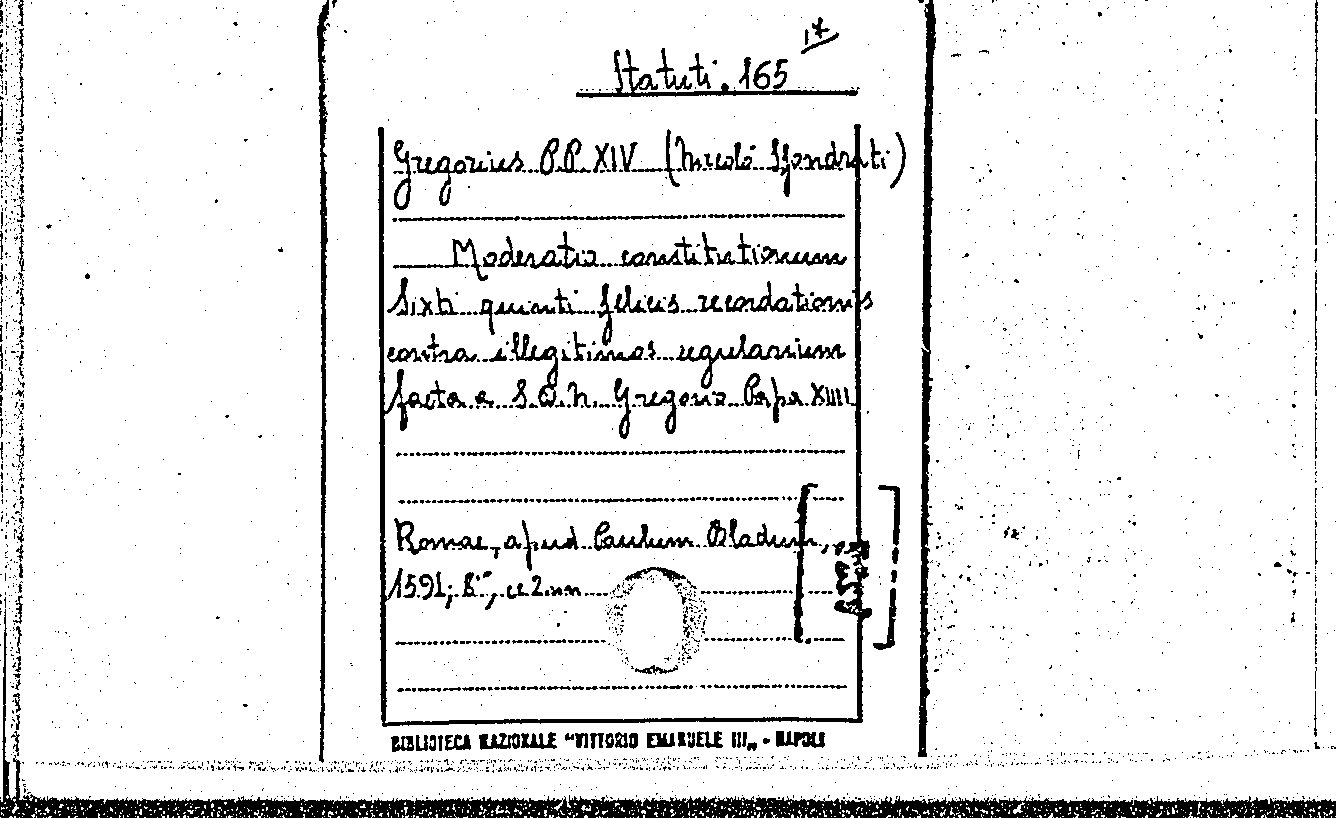 Statuti. 165 17
Gregorius P.P. XIV (Nicolò Sfondrati)
Moderatio constitutionum
Sixti quinti felicis recordationis
contra illegitimos regularium
facta a S.D.N. Gregorio Papa XIIII
Romae, apud Paulum Bladum,
1591; 8°, cc 2.nn
BIBLIOTECA NAZIONALE "VITTORIO EMANUELE III„ - NAPOLI